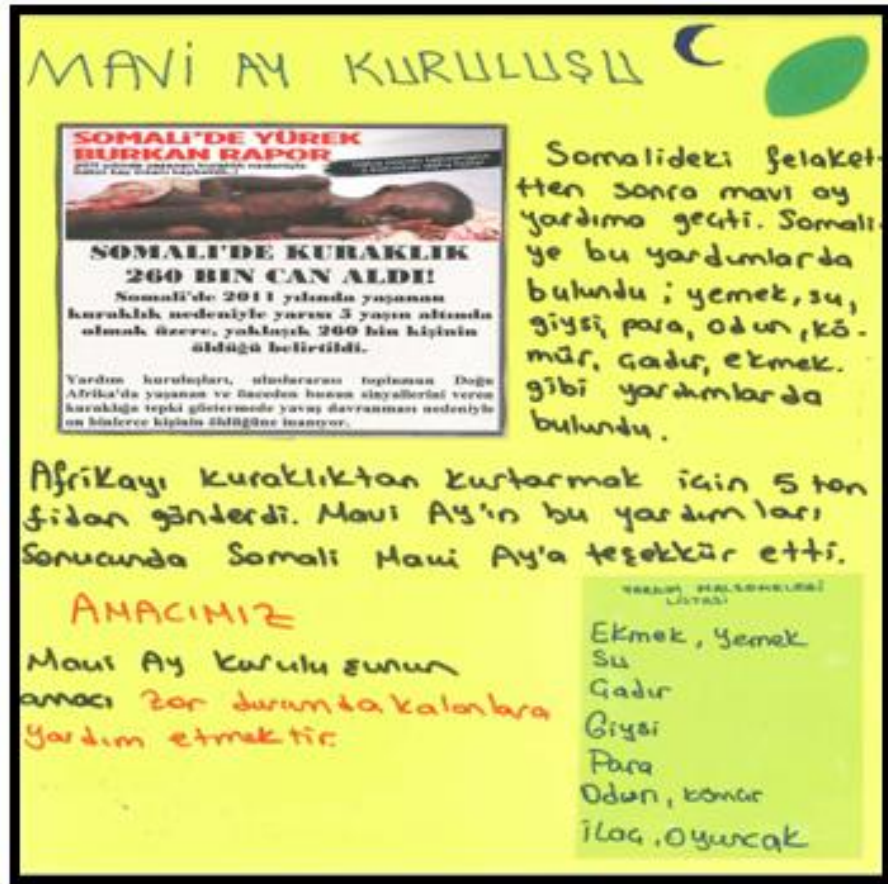 MAVİ AY KURULUŞU
SOMALİ'DE YÜREK
BURKAN RAPOR
SOMALI'DE KURAKLIK
260 BIN CAN ALDI!
Somali'de 2011 yılında yaşanan
kuraklık nedeniyle yarısı 5 yaşın altında
olmak üzere, yaklaşık 260 bin kişinin
öldüğü belirtildi.
Yardım kuruluşları, uluslararası toplumun Doğu
Afrika'da yaşanan ve önceden bunun sinyallerini veren
kuraklığa tepki göstermede yavaş davranması nedeniyle
on binlerce kişinin öldüğüne inanıyor.
Somalideki felaket-
tten sonra mavi ay
yardıma geçti. Somali-
ye bu yardımlarda
bulundu; yemek, su,
giysi, para, odun, kö-
mür, çadır, ekmek.
gibi yardımlarda
bulundu.
Afrikayı kuraklıktan kurtarmak için 5 ton
fidan gönderdi. Mavi Ay'ın bu yardımları
sonucunda Somali Mavi Ay'a teşekkür etti.
AMACIMIZ
Mavi Ay kuruluşunun
amacı zor durumda kalanlara
yardım etmektir.
YARDIM MALZEMELERİ
LİSTESİ
Ekmek, yemek
Su
Çadır
Giysi
Para
Odun, kömür
İlaç, Oyuncak